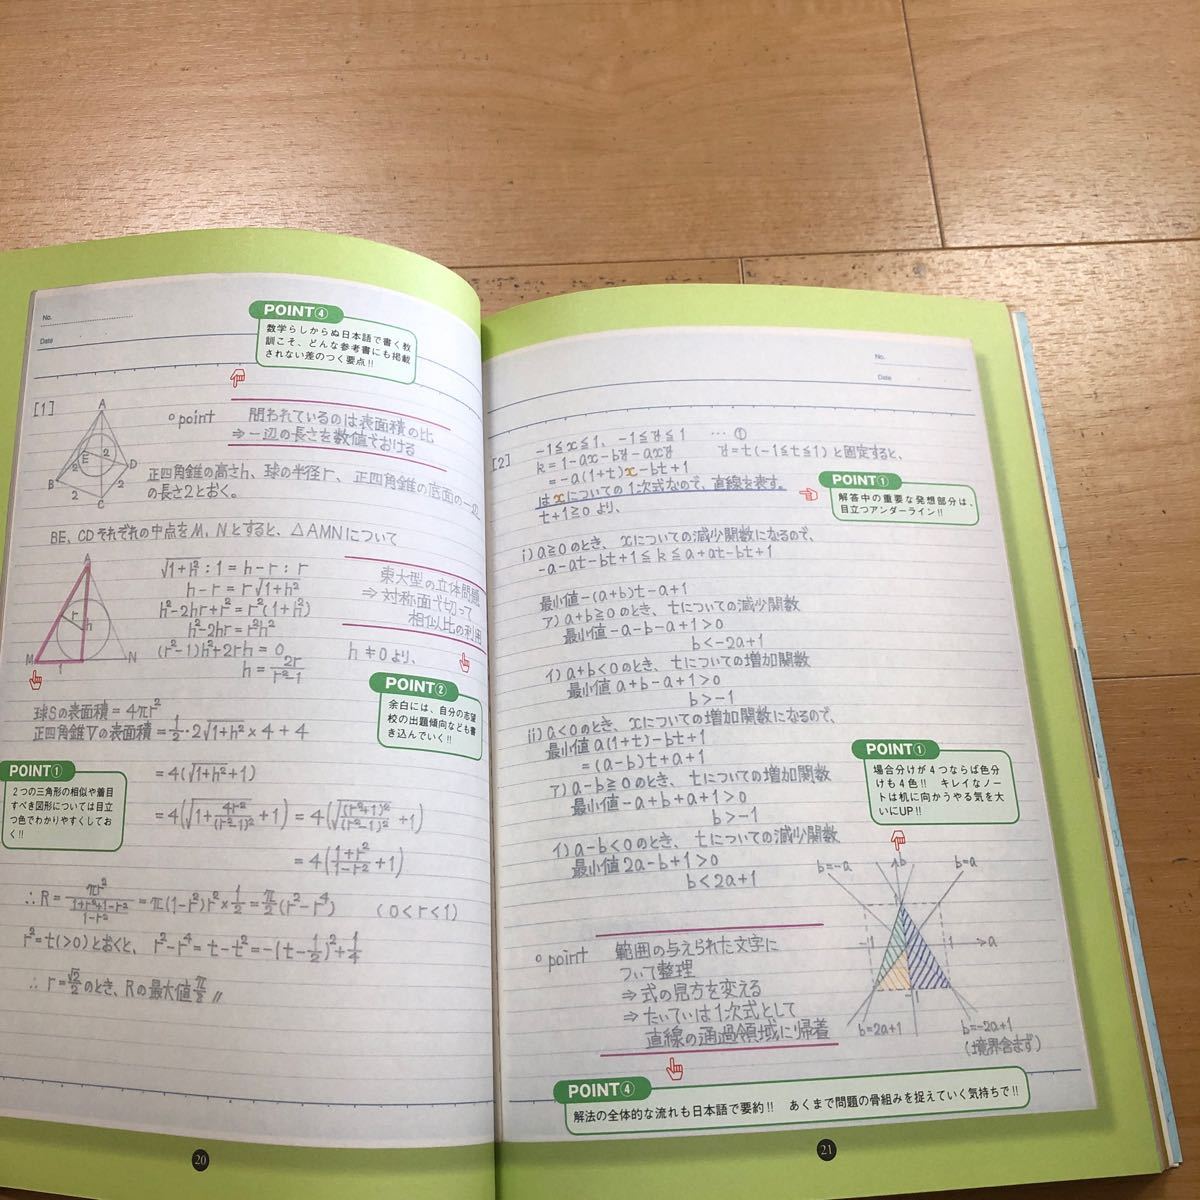 No.
Date
POINT④
数学らしからぬ日本語で書く教
訓こそ、どんな参考書にも掲載
されない差のつく要点!!
[1]
A
B
C
D
E
2
2
2
2
° point 問われているのは表面積の比
⇒一辺の長さを数値でおける
正四角錐の高さh、球の半径r、正四角錐の底面の一辺
の長さ2とおく。
BE, CDそれぞれの中点をM, Nとすると、△AMNについて
A
r
h
M
1
N
√1+h² : 1 = h-r : r
h-r = r√1+h²
h²-2hr+r² = r²(1+h²)
h²-2hr = r²h²
(r²-1)h²+2rh = 0 h≠0より、
h = 2r/r²-1
東大型の立体問題
⇒対称面で切って
相似比の利用
POINT②
余白には、自分の志望
校の出題傾向なども書
き込んでいく!!
球Sの表面積 = 4πr²
正四角錐Vの表面積 = 1/2・2√1+h² × 4 + 4
= 4(√1+h² +1)
POINT①
2つの三角形の相似や着目
すべき図形については目立
つ色でわかりやすくしてお
く!!
= 4(√1+4r²/(r²-1)² +1) = 4(√(r²+1)²/(r²-1)² +1)
= 4(1+r²/1-r² +1)
∴R = πr²/1+r²+1-r²/1-r² = π(1-r²)r²×1/2 = π/2(r²-r⁴) (0<r<1)
r²=t(>0)とおくと、r²-r⁴ = t-t² = -(t-1/2)²+1/4
∴ r=√2/2のとき、Rの最大値π/8 //
20
No.
Date
[2]
-1≦x≦1, -1≦y≦1 …①
k = 1-ax-by-axy y=t(-1≦t≦1)と固定すると、
= -a(1+t)x-bt+1
はxについての1次式なので、直線を表す。
t+1≧0より、
POINT①
解答中の重要な発想部分は、
目立つアンダーライン!!
i) a≧0のとき、xについての減少関数になるので、
-a-at-bt+1≦k≦a+at-bt+1
最小値-(a+b)t-a+1
ア) a+b≧0のとき、tについての減少関数
最小値-a-b-a+1>0
b<-2a+1
イ) a+b<0のとき、tについての増加関数
最小値a+b-a+1>0
b>-1
ii) a<0のとき、xについての増加関数になるので、
最小値a(1+t)-bt+1
=(a-b)t+a+1
ア) a-b≧0のとき、tについての増加関数
最小値-a+b+a+1>0
b>-1
イ) a-b<0のとき、tについての減少関数
最小値2a-b+1>0
b<2a+1
POINT①
場合分けが4つならば色分
けも4色!! キレイなノー
トは机に向かうやる気を大
いにUP!!
b=-a
b
b=a
-1
1
a
-1
b=2a+1
b=-2a+1
(境界含まず)
° point 範囲の与えられた文字に
ついて整理
⇒式の見方を変える
⇒たいていは1次式として
直線の通過領域に帰着
POINT④
解法の全体的な流れも日本語で要約!! あくまで問題の骨組みを捉えていく気持ちで!!
21